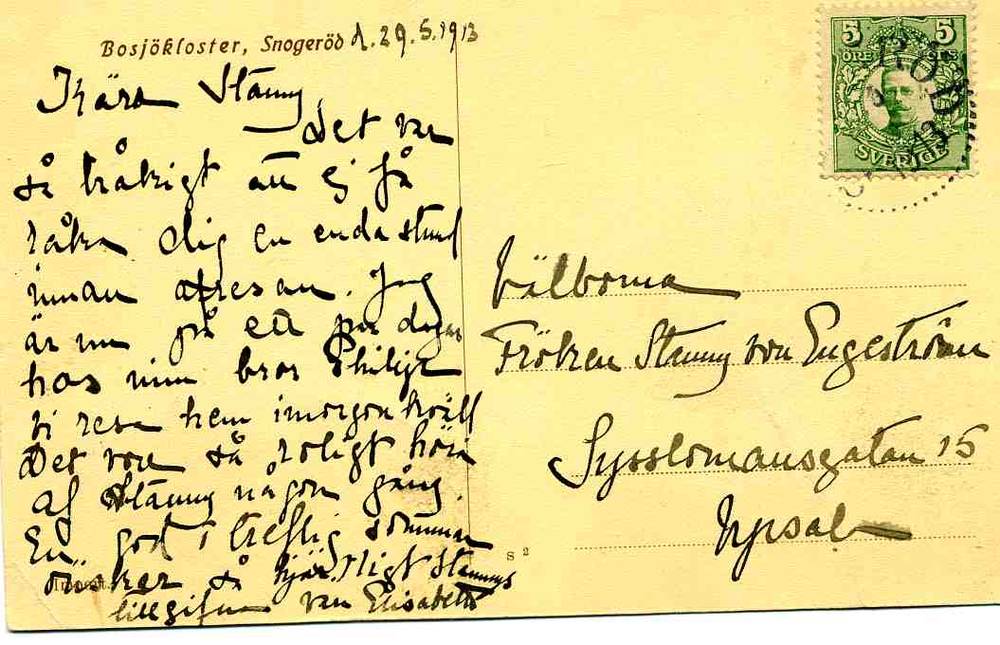 Bosjökloster, Snogeröd d. 29.5.1913
Kära Stanny,
det var
så tråkigt att ej få
råka dig en enda stund
innan afresan. Jag
är nu på ett par dagar
hos min bror Philip
vi resa hem imorgon kväll
Det vore så roligt höra
af Stanny någon gång.
En god, treflig sommar
önskar så hjärtligt Stannys
tillgifna vän Elisabeth
5 5
ÖRE
SVERIGE
RÖD
Välborna
Fröken Stanny von Engeström
Sysslomansgatan 15
Upsala
S 2